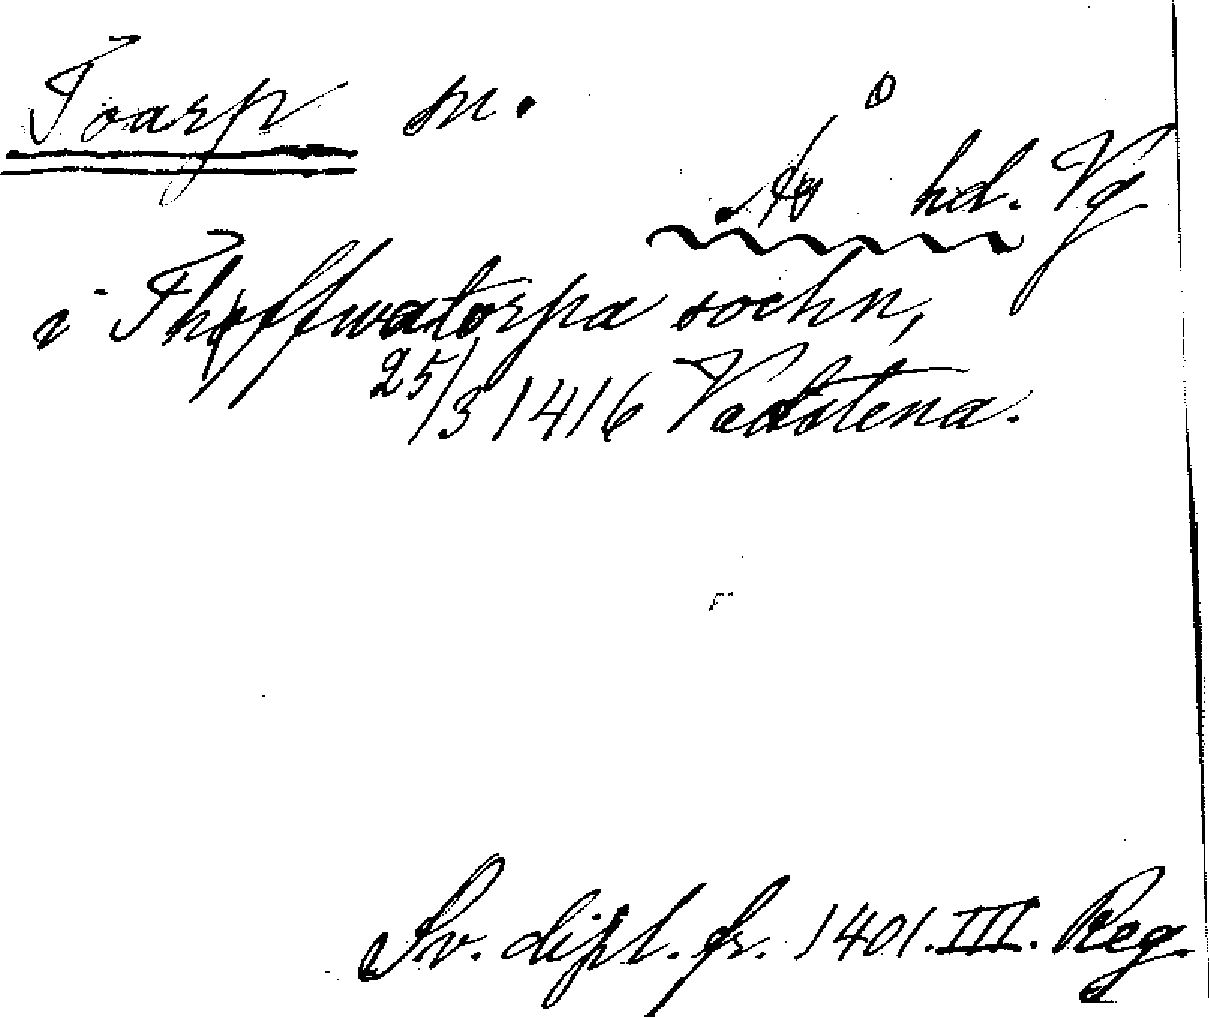 Toarp sn.
Ås hd. Vg
i Thoffwatorpa sochn,
25/3 1416 Vadstena.
Sv. dipl. fr. 1401. III. Reg.